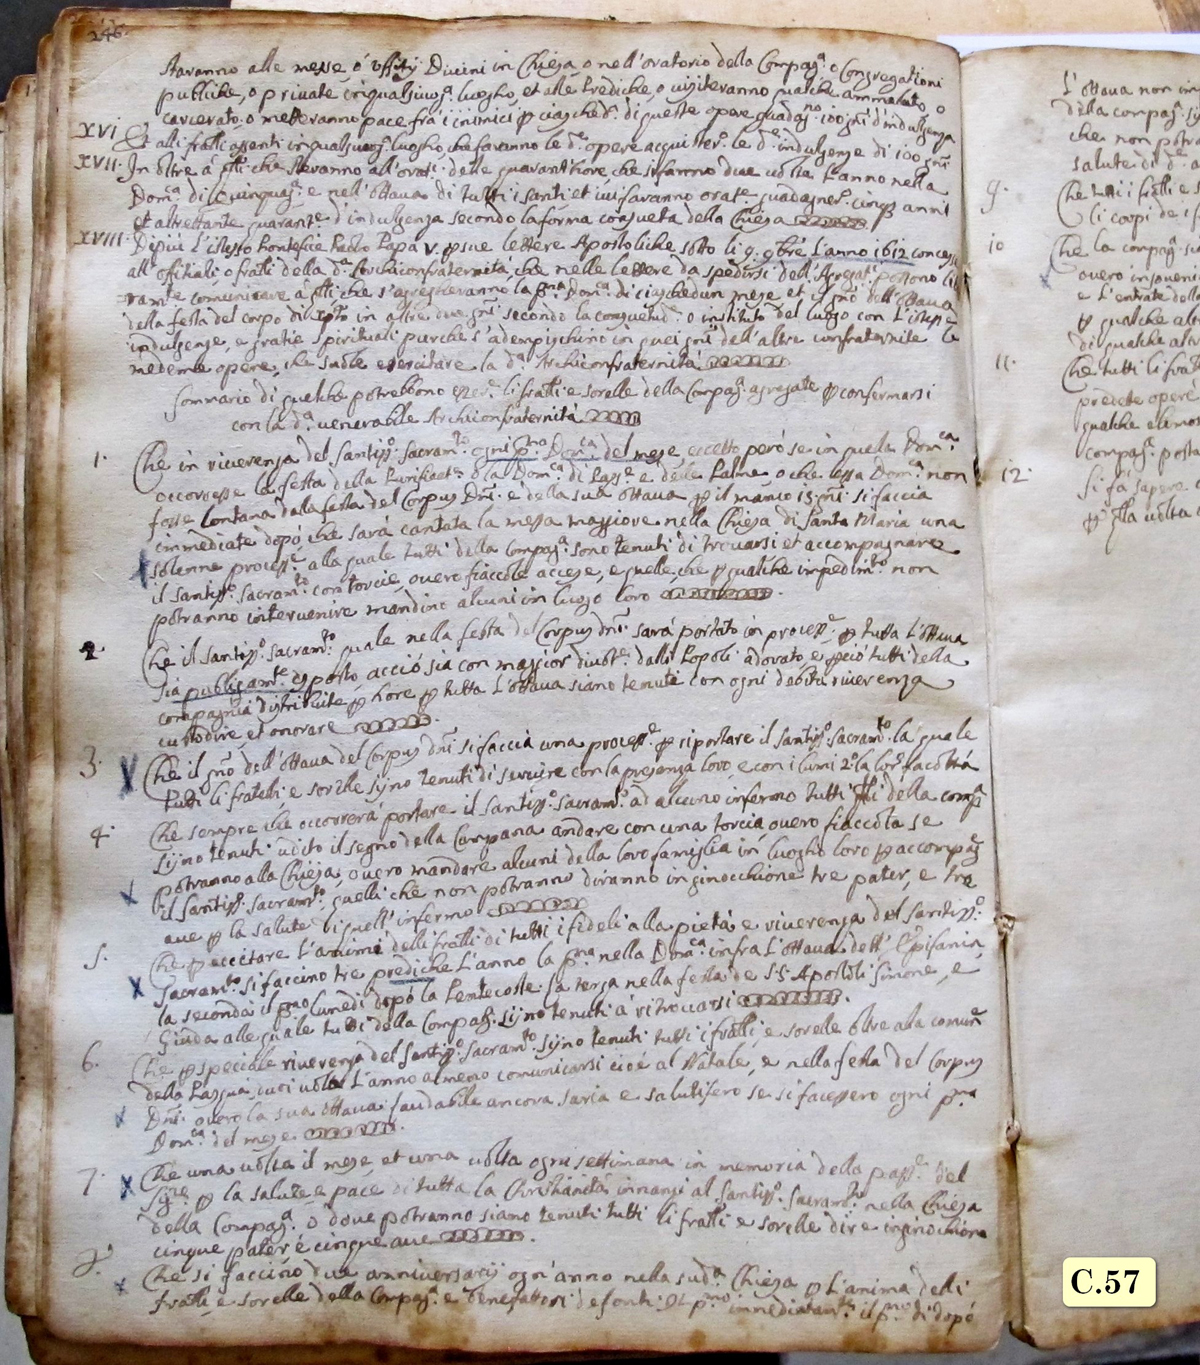 246.
staranno alle messe, ò offitij Divini in Chiesa, o nell'oratorio della Compag.ª o Congregationi
publiche, o private in qualsivog.ª luogho, et alle Prediche, o visiteranno qualche ammalato, o
carcerato, o metteranno pace fra i inimici ꝑ ciasched.ª di queste opere guadag.no 100 gni d'indulgenza
XVI Et alli fratli assenti in qualsivog. luogho, che faranno le d.e opere acquister.o le d.e indulgenze di 100 gni
XVII. In oltre à qlli che staranno all'orat.e delle quarant'hore, che si fanno due volte l'anno nella
Dom.ca di Quinquag.a e nell'ottava di tutti i santi et ivi faranno orat.e guadagner.o cinq anni
et altrettante quarant.e d'indulgenza secondo la forma consueta della Chiesa
XVIII. Di più l'istesso Pontefice Paulo Papa V. ꝑ sue lettere Apostoliche sotto li 9. 9bre l'anno 1612 concesse
all'offitiali, o fratli della d.ª Archiconfraternità, che nelle lettere da spedirsi dell'Agregat. possono lib
ram.te comunicare à qlli che s'agregheranno la pma Dom.ca di ciaschedun mese et il gno dell'ottava
della festa del corpo di xpto in altre due gni secondo la consuetud. o instituto del luogo con l'istesse
indulgenze, e gratie spirituali purche s'adempischino in quei gni dell'altre confraternite le
medeme opere, che suole esercitare la d.ª Archiconfraternità
Sommario di qualche potrebbono esser. li fratli e sorelle della Compag. agregate ꝑ confermarsi
con la d.ª venerabile Archiconfraternità
1. Che in riverenza del Santiss.o Sacram.to ogni pma Dom.ca del mese, eccetto però se in quella Dom.ca
occorresse la festa della Purificat.e o la Dom.ca di Pass.e e delle Palme, o che essa Dom.ca non
fosse lontana dalla festa del Corpus Dni. e della sua ottava ꝑ il manco 15 gni. si faccia
immediate dopò, che sarà cantata la messa maggiore nella Chiesa di Santa Maria una
solenne process.e alla quale tutti della Compag.ª sono tenuti di trovarsi et accompagnare
il Santiss.o Sacram.to con torcie, overo fiaccole accese, e quelle, che ꝑ qualche impedim.to non
potranno intervenire mandino alcuni in luogo loro
2. Che il Santiss.o Sacram.to quale nella festa del Corpus Dni. sarà portato in process.e ꝑ tutta l'ottava
sia publicam.te esposto, acciò sia con maggior divot.e dalli Popoli adorato, e ꝑciò tutti della
compagnia distribuite ꝑ hore ꝑ tutta l'ottava siano tenuti con ogni debita riverenza
custodire, et onorare
3. Che il gno dell'ottava del Corpus Dni si faccia una process.e ꝑ riportare il Santiss.o Sacram.to la quale
tutti li fratelli, e sorelle sijno tenuti di servire con la presenza loro, e con i lumi 2.o la lor facoltà
4. Che sempre che occorrerà portare il Santiss.o Sacram.o ad alcuno infermo tutti qlli della compa
sijno tenuti udito il segno della Campana andare con una torcia overo fiaccola se
potranno alla Chiesa, overo mandare alcuni della loro famiglia in luogho loro ꝑ accompag
il Santiss. Sacram.to, quelli che non potranno diranno inginocchione tre pater, e tre
ave ꝑ la salute di quell'infermo
5. Che ꝑ eccitare l'animi delli fratlli di tutti i fideli alla pietà e riverenza del Santiss.o
Sacram.to si faccino tre prediche l'anno la pma nella Dom.ca infra l'ottava dell'Epifania,
la seconda il pmo lunedì dopò la Pentecoste la terza nella festa de SS. Apostoli Simone, e
Giuda alle quale tutti della Compag. sijno tenuti à ritrovarsi
6. Che ꝑ speciale riverenza del Santiss.o Sacram.to sijno tenuti tutti i fratlli, e sorelle oltre alla comun
della Pasqua due volte l'anno almeno comunicarsi cioè al Natale, e nella festa del Corpus
Dni. overo la sua ottava: laudabile ancora saria e salutifero se si facessero ogni pma
Dom.ca del mese
7. Che una volta il mese, et una volta ogni settimana in memoria della pass.e del
Sig.re ꝑ la salute, e pace di tutta la Christianità innanzi al Santiss.o Sacram.to nella Chiesa
della Compag.ª o dove potranno siano tenuti tutti li fratlli e sorelle dire inginochione
cinque pater e cinque ave
8. Che si faccino due anniversarij ogn'anno nella sud.ª Chiesa ꝑ l'anima delli
fratlli e sorelle della Compag.ª e benefattori defonti: il p.mo immediatam.te il p.mo dì dopò
L'ottava non im
della compag.ª
che non potra
salute di d.e a
9. Che tutti i fratlli e s
li corpi de i f
10 Che la compag.ª
overo insoveni
e l'entrate della
ꝑ qualche alt
di qualche altr
11. Che tutti li fratl
predete opere
qualche elemos
compag.ª porta
12. Si fa sapere
ꝑ qlla volta
C.57